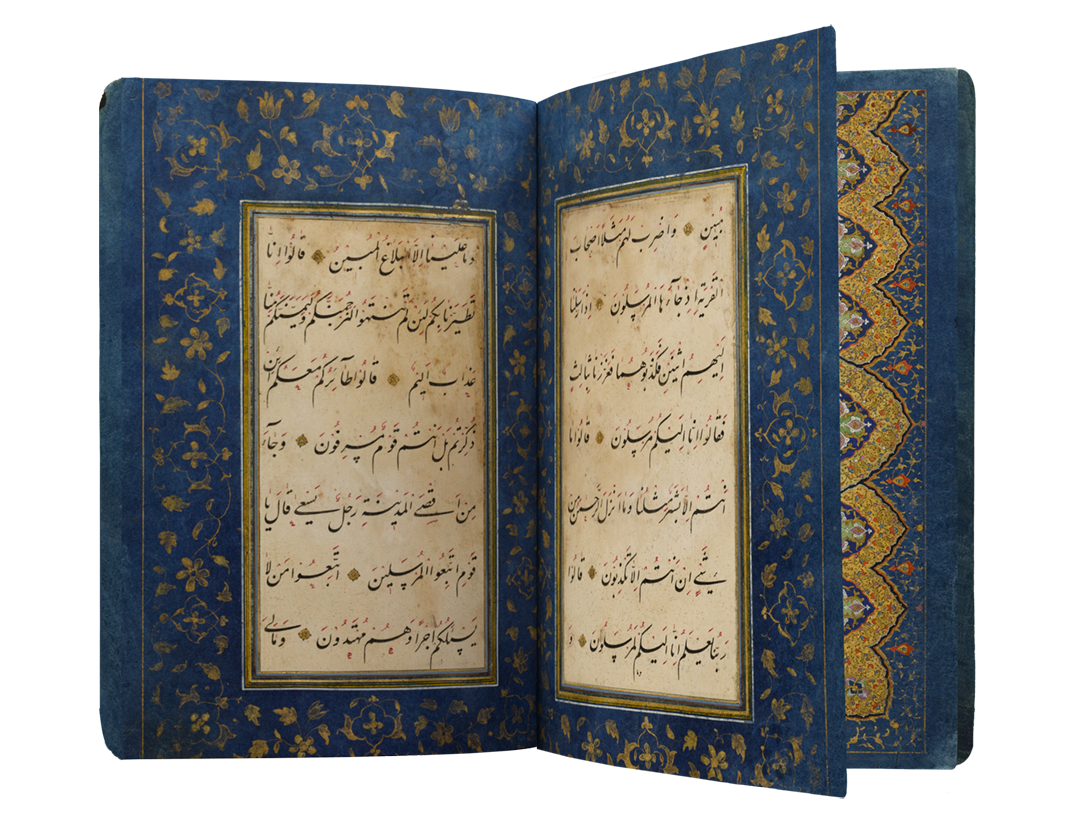 مُبِينٍ وَاضْرِبْ لَهُمْ مَثَلًا اَصْحَابَ
الْقَرْيَةِ اِذْ جَآءَهَا الْمُرْسَلُونَ اِذْ اَرْسَلْنَا
اِلَيْهِمُ اثْنَيْنِ فَكَذَّبُوهُمَا فَعَزَّزْنَا بِثَالِثٍ
فَقَالُوا اِنَّا اِلَيْكُمْ مُرْسَلُونَ قَالُوا مَا
اَنْتُمْ اِلَّا بَشَرٌ مِثْلُنَا وَمَا اَنْزَلَ الرَّحْمٰنُ مِنْ
شَيْءٍ اِنْ اَنْتُمْ اِلَّا تَكْذِبُونَ قَالُوا
رَبُّنَا يَعْلَمُ اِنَّا اِلَيْكُمْ لَمُرْسَلُونَ وَ
وما
وَمَا عَلَيْنَا اِلَّا الْبَلَاغُ الْمُبِينُ قَالُوا اِنَّا
تَطَيَّرْنَا بِكُمْ لَئِنْ لَمْ تَنْتَهُوا لَنَرْجُمَنَّكُمْ وَلَيَمَسَّنَّكُمْ مِنَّا
عَذَابٌ اَلِيمٌ قَالُوا طَآئِرُكُمْ مَعَكُمْ اَئِنْ
ذُكِّرْتُمْ بَلْ اَنْتُمْ قَوْمٌ مُسْرِفُونَ وَجَآءَ
مِنْ اَقْصَى الْمَدِينَةِ رَجُلٌ يَسْعٰى قَالَ يَا
قَوْمِ اتَّبِعُوا الْمُرْسَلِينَ اتَّبِعُوا مَنْ لَا
يَسْئَلُكُمْ اَجْرًا وَهُمْ مُهْتَدُونَ وَمَا لِيَ